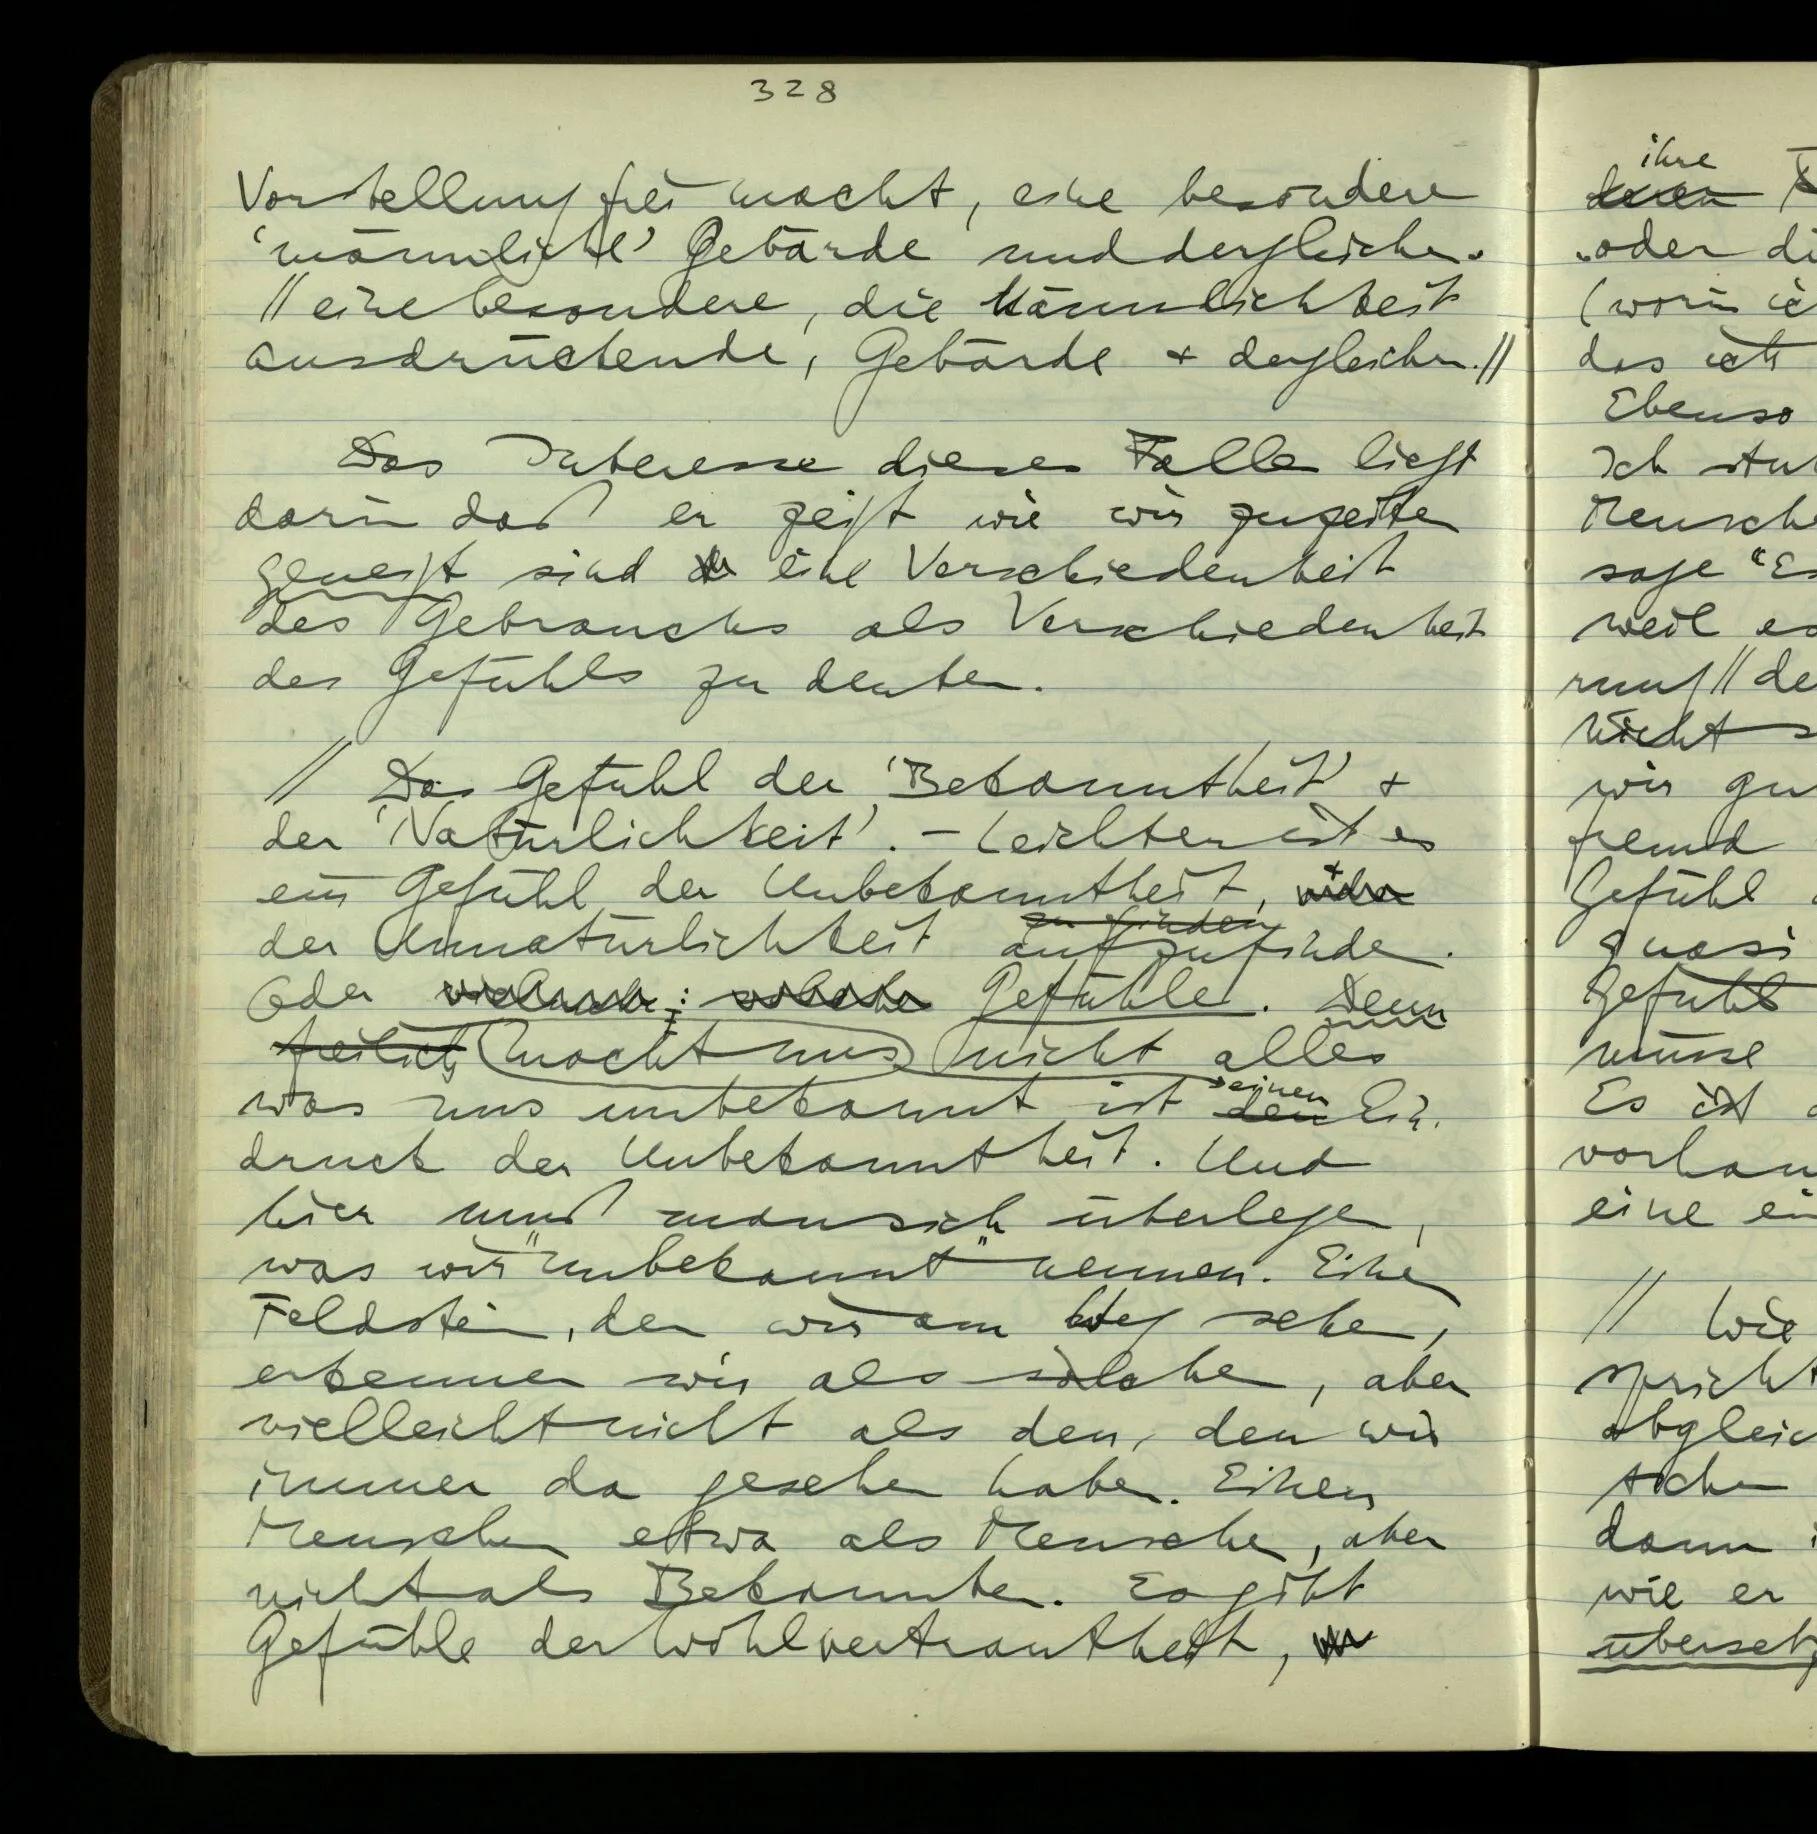 328
Vorstellung frei macht, eine besondere
'männliche' Gebärde und dergleichen.
// eine besondere, die Männlichkeit
ausdrückende, Gebärde + dergleichen. //
Das Interesse dieses Falles liegt
darin daß er zeigt wie wir zuzeiten
geneigt sind eine Verschiedenheit
des Gebrauchs als Verschiedenheit
des Gefühls zu deuten.
// Das Gefühl der 'Bekanntheit' +
der 'Natürlichkeit'. – Leichter ist es
ein Gefühl der Unbekanntheit, +
der Unnatürlichkeit zu finden
aufzufinden.
Oder : Gefühle. Denn
freilich macht uns nicht alles
was uns unbekannt ist den einen Ein-
druck der Unbekanntheit. Und
hier muß man sich überlegen,
was wir "unbekannt" nennen. Einen
Feldstein, den wir am Weg sehen,
erkennen wir als solchen, aber
vielleicht nicht als den, den wir
immer da gesehen haben. Einen
Menschen etwa als Menschen, aber
nicht als Bekannten. Es gibt
Gefühle der Wohlvertrautheit,
ihre
deren
oder di
(worin ic
das ich
Ebenso
Ich
Mensche
sage "Es
weil es
rung // de
nicht s
wir gu
fremd
Gefühl
quasi
Gefühl
müsse
Es ist
vorhan
eine ein
// Wie
spricht
abgleic
dann
wie er
übersetz